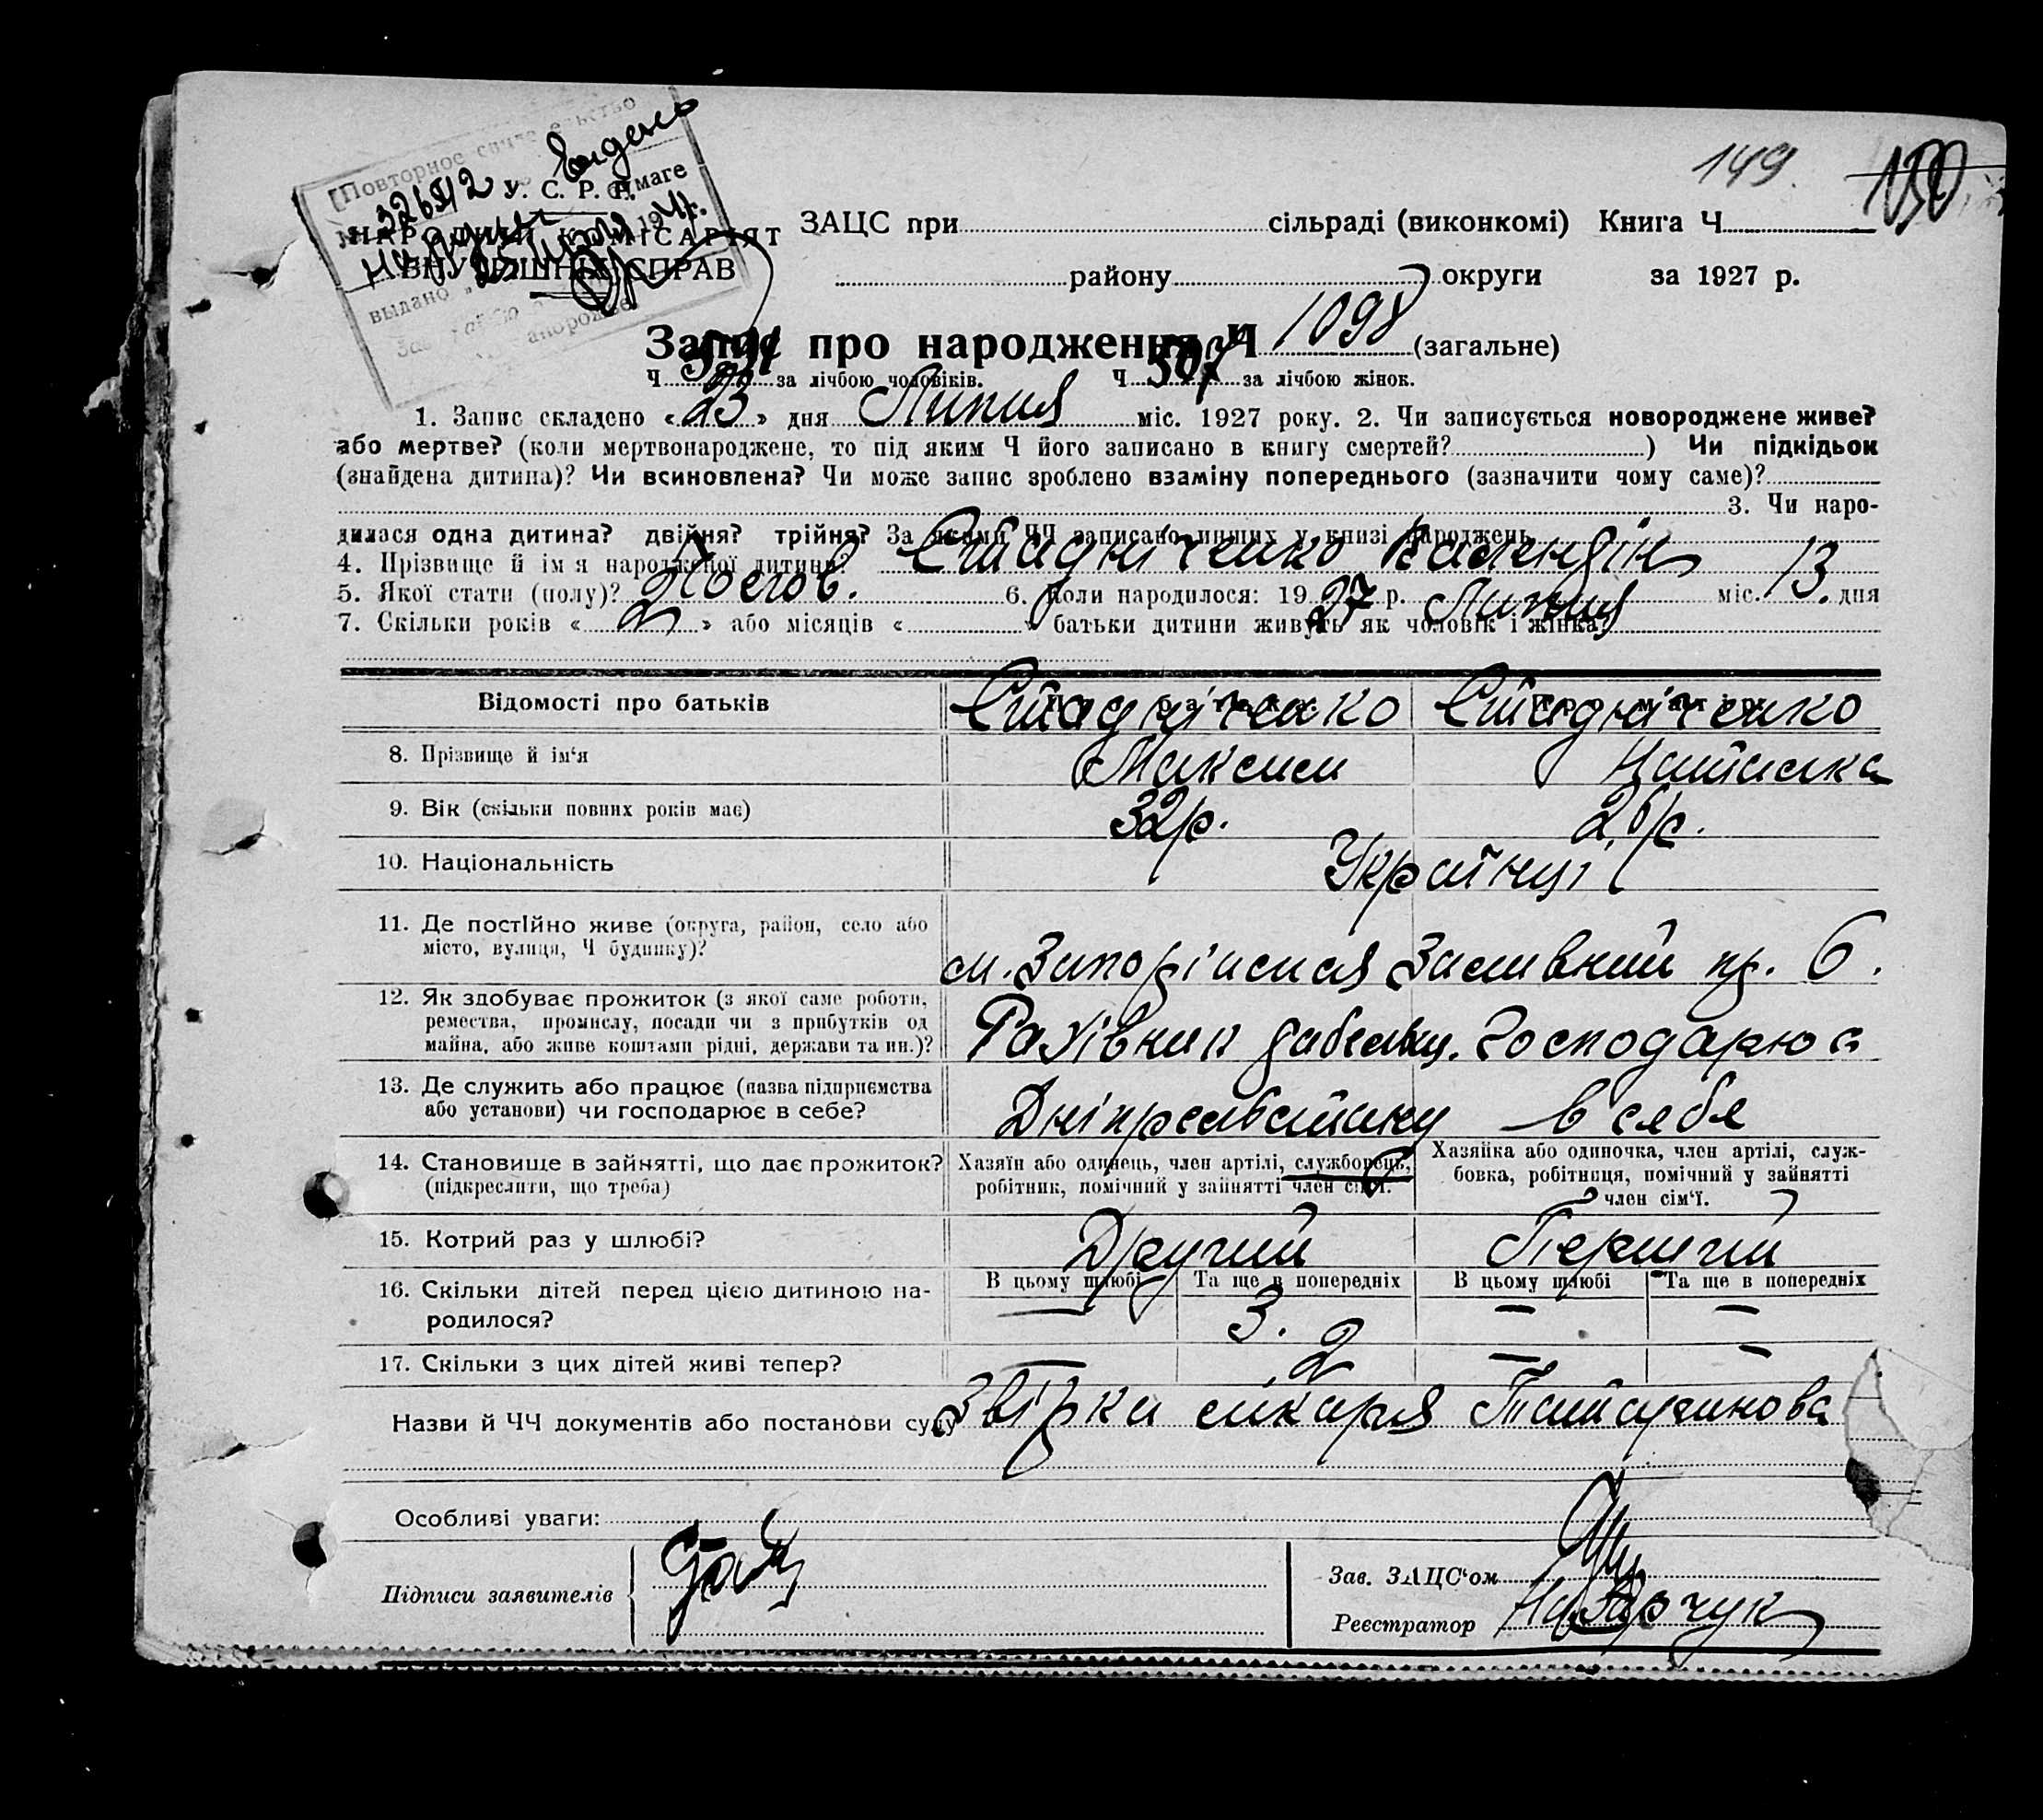 149. 150
Повторное
№ 326512 У. С. Р. Р. бумаге
НАРОДНИЙ КОМІСАРІЯТ
ВНУТРІШНІХ СПРАВ
выдано
ЗАЦС при сільраді (виконкомі) Книга Ч
району округи за 1927 р.
Запис про народження Ч 1098 (загальне)
Ч 591 за лічбою чоловіків. Ч 507 за лічбою жінок.
1. Запис складено « 23 » дня Липня міс. 1927 року. 2. Чи записується новороджене живе?
або мертве? (коли мертвонароджене, то під яким Ч його записано в книгу смертей? ) Чи підкідьок
(знайдена дитина)? Чи всиновлена? Чи може запис зроблено взаміну попереднього (зазначити чому саме)?
3. Чи наро-
дилася одна дитина? двійня? трійня? За якими ЧЧ записано инших у книзі народжень
4. Прізвище й ім'я народженої дитини? Стадніченко Валендін
5. Якої стати (полу)? 6. Коли народилося: 19 27 р. Липня міс. 13 дня
7. Скільки років « 2 » або місяців « » батьки дитини живуть як чоловік і жінка?
Відомості про батьків
8. Прізвище й ім'я Стадніченко Максим Стадніченко Наталка
9. Вік (скільки повних років має) 32 р. 26 р.
10. Національність Українці
11. Де постійно живе (округа, район, село або
місто, вулиця, Ч будинку)? м. Запоріжжя Заливний пр. 6.
12. Як здобуває прожиток (з якої саме роботи,
ремества, промислу, посади чи з прибутків од
майна, або живе коштами рідні, держави та ин.)? Рахівник Господарює
13. Де служить або працює (назва підприємства
або установи) чи господарює в себе? в себя
14. Становище в зайнятті, що дає прожиток?
(підкреслити, що треба)
Хазяїн або одинець, член артілі, службовець,
робітник, помічний у зайнятті член сім'ї.
Хазяйка або одиночка, член артілі, служ-
бовка, робітниця, помічний у зайнятті
член сім'ї.
15. Котрий раз у шлюбі? Другий Перший
В цьому шлюбі Та ще в попередніх В цьому шлюбі Та ще в попередніх
16. Скільки дітей перед цією дитиною на-
родилося? — 3. — —
17. Скільки з цих дітей живі тепер? — 2 — —
Назви й ЧЧ документів або постанови суду лікаря
Особливі уваги:
Підписи заявителів
Зав. ЗАЦС'ом
Реєстратор Назарчук